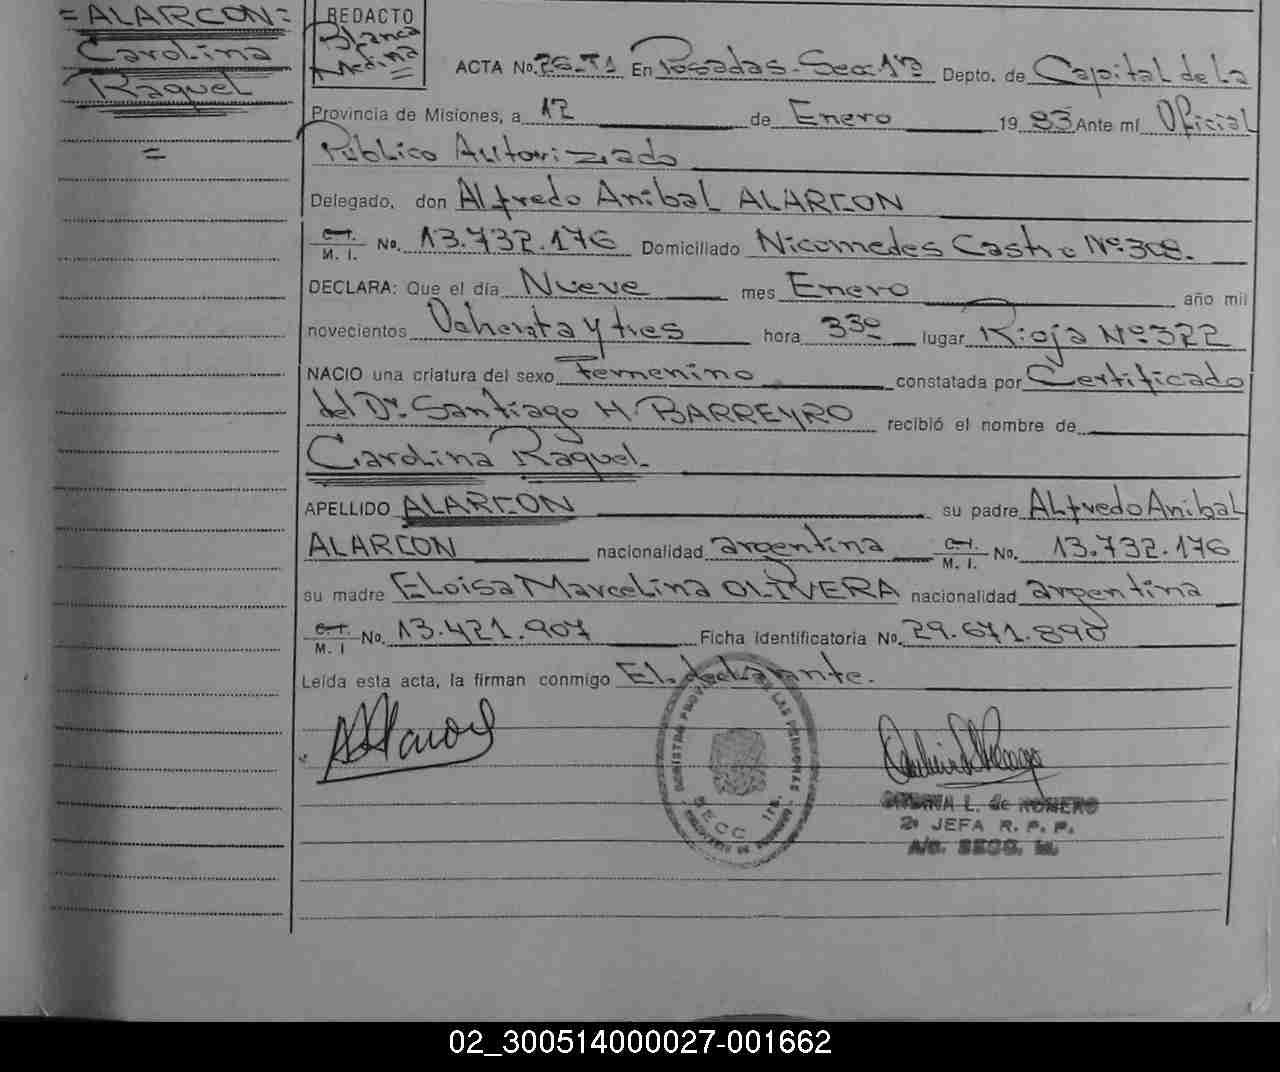 =ALARCON=
Carolina
Raquel
=
REDACTO
Blanca
Medina
ACTA No. 26-T1 En Posadas-Secc.1ra Depto. de Capital de La
Provincia de Misiones, a 12 de Enero 19 83 Ante mí Oficial
Público Autorizado
Delegado, don Alfredo Anibal ALARCON
C.I. M. I. No. 13.732.176 Domiciliado Nicomedes Castro Nº 308.
DECLARA: Que el día Nueve mes Enero año mil
novecientos Ochenta y tres hora 330 lugar Rioja Nº 322
NACIO una criatura del sexo Femenino constatada por Certificado
del Dr. Santiago H. BARREYRO recibió el nombre de
Carolina Raquel.
APELLIDO ALARCON su padre ALfredo Anibal
ALARCON nacionalidad argentina C.I. M. I. No. 13.732.176
su madre ELoisa Marcelina OLIVERA nacionalidad argentina
C.I. M. I No. 13.421.907 Ficha Identificatoria No. 29.671.890
Leída esta acta, la firman conmigo El declarante.
REGISTRO PROV. DE LAS PERSONAS
SECC 1ra.
L. de ROMERO
2º JEFA R. P. P.
A/C. SECC. 1a.
02_300514000027-001662